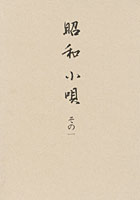 昭和小唄
その一